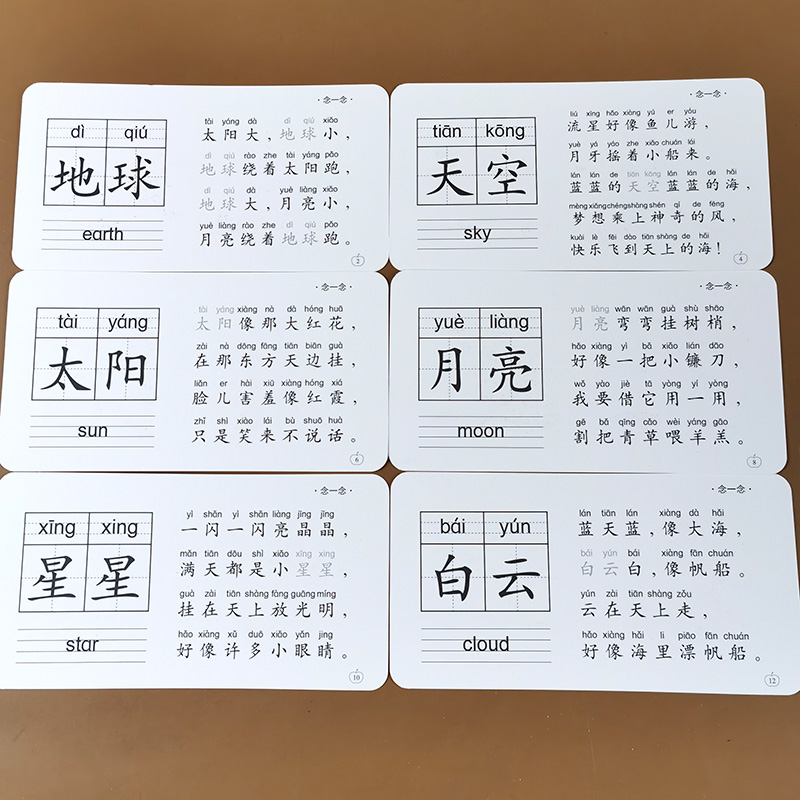 ·念一念·
dì qiú
地球
earth
tài yáng dà dì qiú xiǎo
太阳大,地球小,
dì qiú rào zhe tài yáng pǎo
地球绕着太阳跑,
dì qiú dà yuè liàng xiǎo
地球大,月亮小,
yuè liàng rào zhe dì qiú pǎo
月亮绕着地球跑。
2
·念一念·
tiān kōng
天空
sky
liú xīng hǎo xiàng yú er yóu
流星好像鱼儿游,
yuè yá yáo zhe xiǎo chuán lái
月牙摇着小船来。
lán lán de tiān kōng lán lán de hǎi
蓝蓝的天空蓝蓝的海,
mèng xiǎng chéng shàng shén qí de fēng
梦想乘上神奇的风,
kuài lè fēi dào tiān shàng de hǎi
快乐飞到天上的海!
4
·念一念·
tài yáng
太阳
sun
tài yáng xiàng nà dà hóng huā
太阳像那大红花,
zài nà dōng fāng tiān biān guà
在那东方天边挂,
liǎn er hài xiū xiàng hóng xiá
脸儿害羞像红霞,
zhǐ shì xiào lái bù shuō huà
只是笑来不说话。
6
·念一念·
yuè liàng
月亮
moon
yuè liàng wān wān guà shù shāo
月亮弯弯挂树梢,
hǎo xiàng yì bǎ xiǎo lián dāo
好像一把小镰刀,
wǒ yào jiè tā yòng yí yòng
我要借它用一用,
gē bǎ qīng cǎo wèi yáng gāo
割把青草喂羊羔。
8
·念一念·
xīng xing
星星
star
yì shǎn yì shǎn liàng jīng jīng
一闪一闪亮晶晶,
mǎn tiān dōu shì xiǎo xīng xing
满天都是小星星,
guà zài tiān shàng fàng guāng míng
挂在天上放光明,
hǎo xiàng xǔ duō xiǎo yǎn jing
好像许多小眼睛。
10
·念一念·
bái yún
白云
cloud
lán tiān lán xiàng dà hǎi
蓝天蓝,像大海,
bái yún bái xiàng fān chuán
白云白,像帆船。
yún zài tiān shàng zǒu
云在天上走,
hǎo xiàng hǎi li piāo fān chuán
好像海里漂帆船。
12